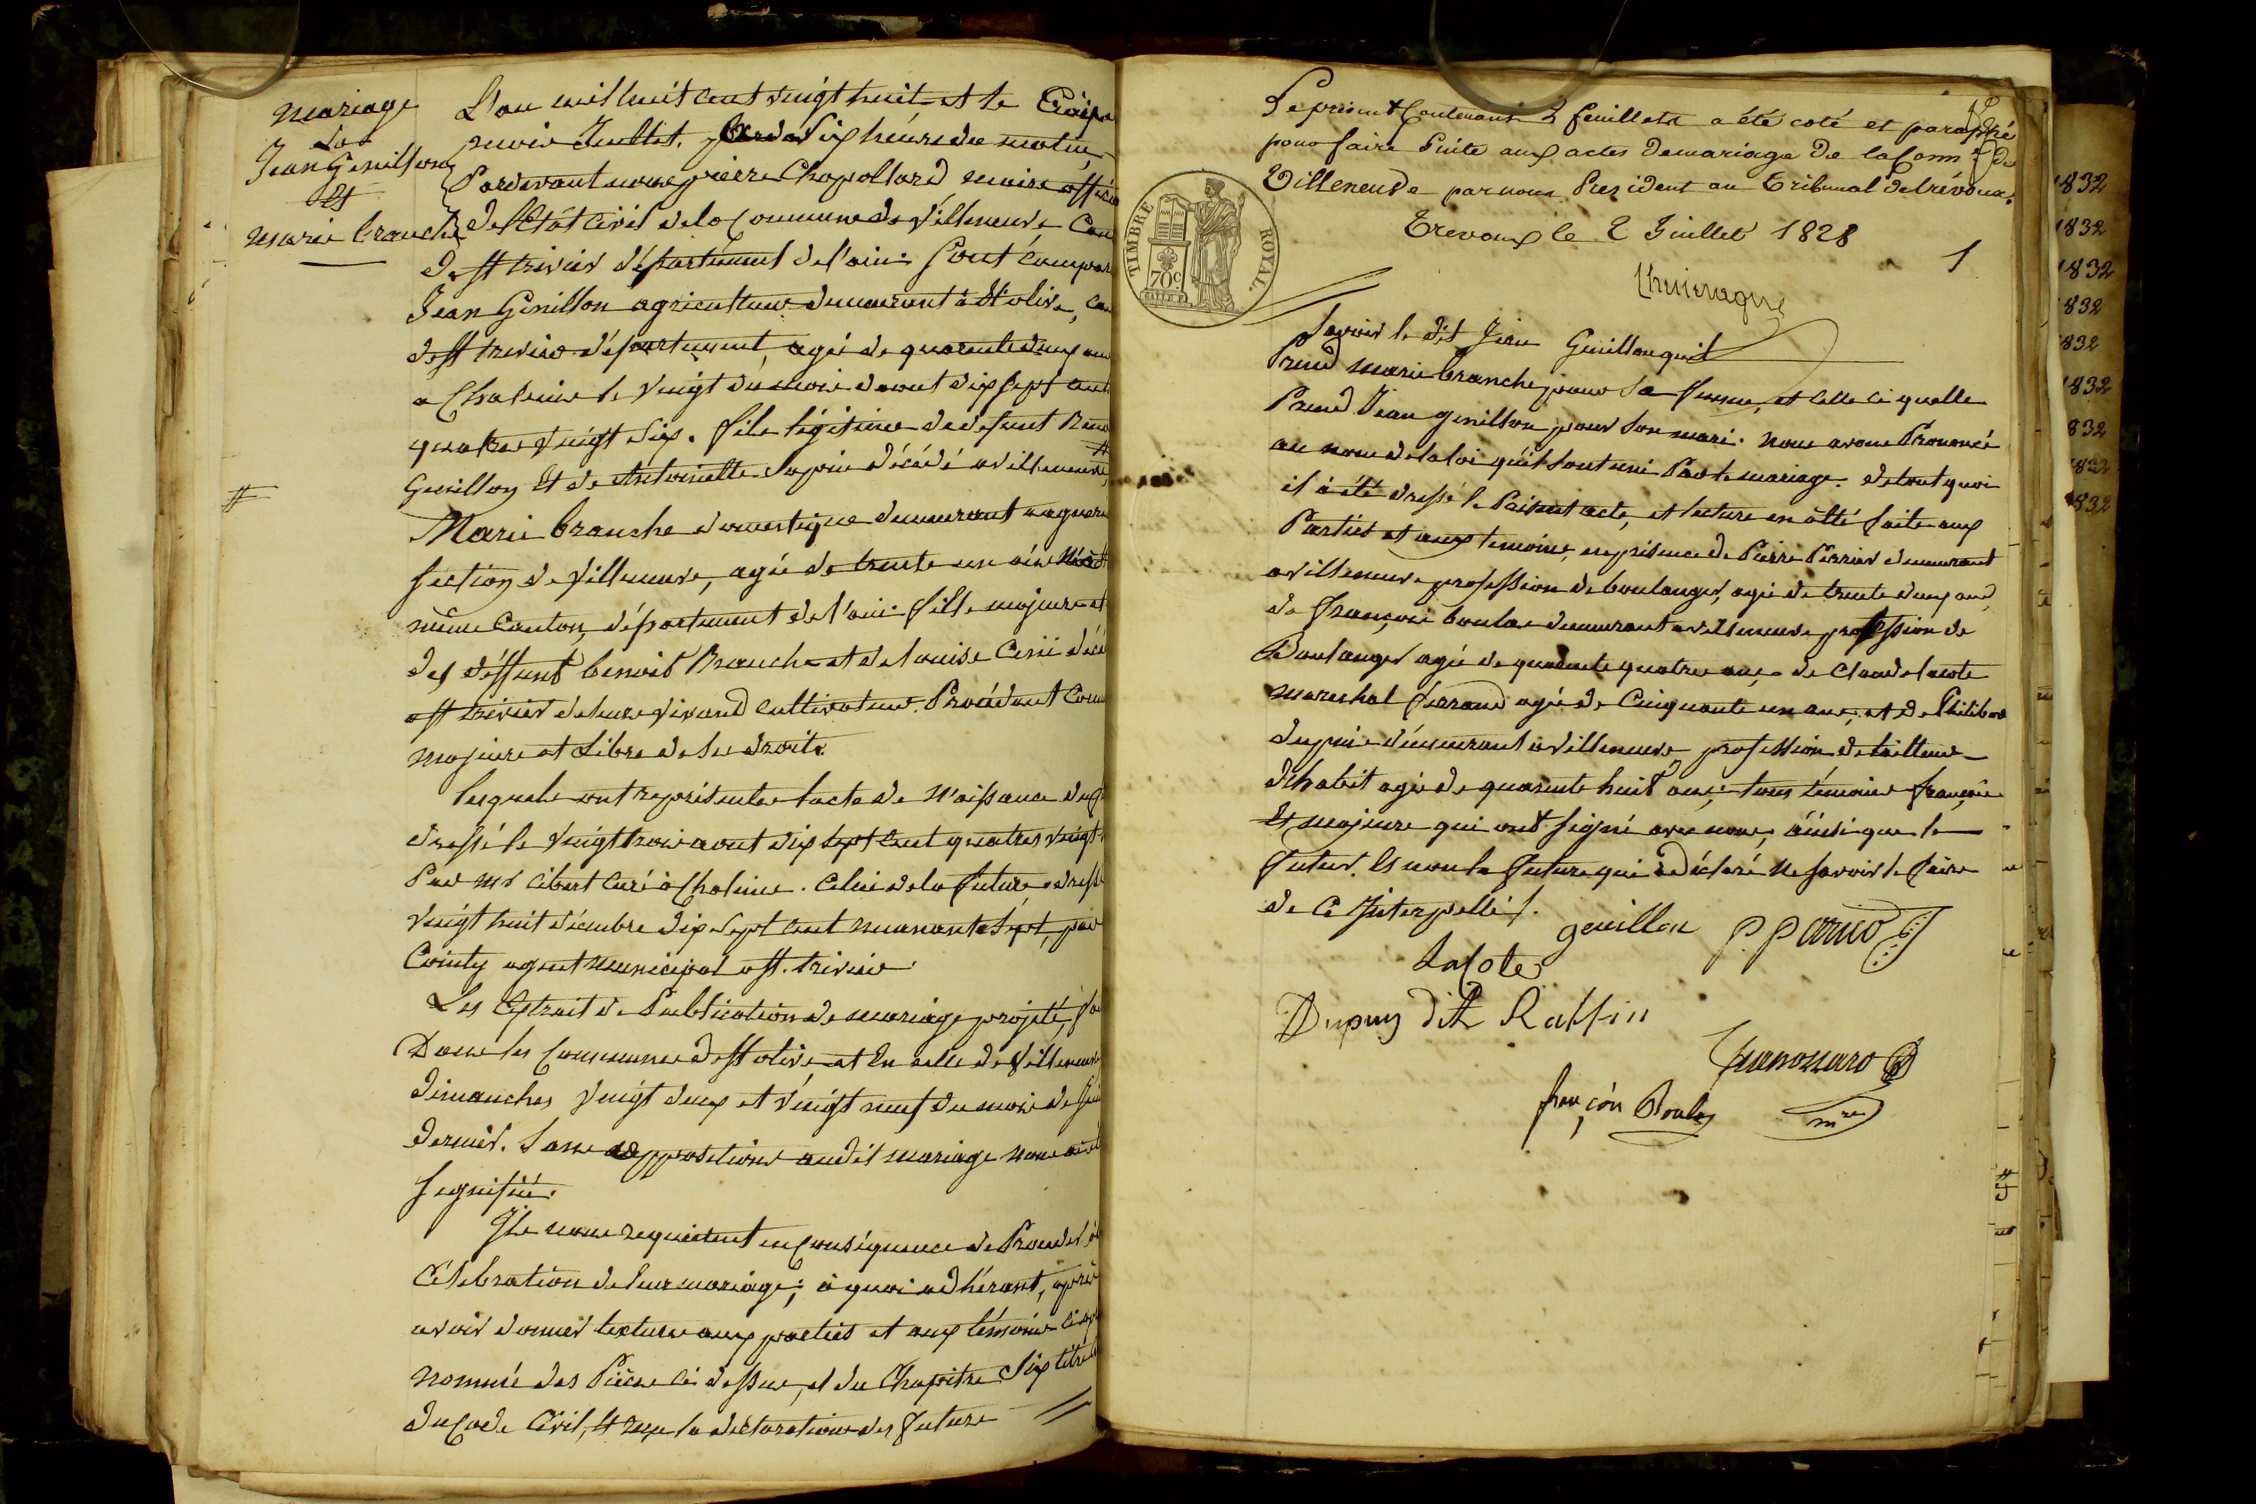 mariage
de
Jean Genillon
Et
marie branche
L'an mil huit cent vingt huit et le Trois
mois Juillet. Six heures du matin,
Pardevant nous pierre Chapollard maire offici
de l'Etat civil de la Commune de Villeneuve Can
de st trivier département de l'ain. Sont Compar
Jean Genillon agriculteur demeurant à St olive, Can
de st trivier département, agé de quarente deux ans
a Chaleins le Vingt du mois d'aout dix sept cent
quatre Vingt Six. fils légitime de defunt
Genillon Et de Antoinette Sapin décédé a Villeneuve,
Marie branche domestique demeurant
section de Villeneuve, agée de trente un ans
même Canton, département de l'ain. fille majeure et
des déffunt benoit Branche et de Louise décé
a st trivier de leurs vivand cultivateurs. Procédant Comm
majeure et Libre de ses droits.
lesquels ont représentés l'acte de Naissance du
dressé le Vingt trois aout dix sept cent quatres vingt
Par Mr Cibert Curé à Chaleins. Celui de la future dressé
Vingt huit décembre dix sept cent nonante Sept, par
Cointy agent municipal a st. trivier.
Les Extrait de Publication de mariage projeté,
Dans les Communes de St olive et En celle de Villeneuve
dimanches Vingt deux et Vingt neuf du mois de Juin
dernier. Sans oppositions audit mariage nous aient
Signifiée.
Ils nous requierent en Conséquence de Proceder à
Célébration de leur mariage; à quoi adhérant, après
avoir donner lecture aux parties et aux témoins ci ap
nommé des Pièces ci dessus, et du Chapitre Six titre
du Code Civil, et sur la déclaration des futurs
Le présent Contenant 2 feuillets a été coté et paraphé
pour faire Suite aux actes de mariage de la Comm de
Villeneuve par nous President au Tribunal de trévoux.
Trevoux le 2 Juillet 1828
1
TIMBRE ROYAL.
70c
Savoir le dit Jean Genillon quil
Prend marie branche pour Sa femme, et Celle ci quelle
Prend Jean genillon pour Son mari. nous avons Prononcé
au nom de la loi qu'il sont uni Par le mariage. de tout quoi
il à été dressé le Présent acte, et lecture en à été faite aux
Parties et aux temoins, en présence de Pierre Perrier demeurant
a Villeneuve profession de boulanger, agé de trente deux ans,
de François boulas demeurant a Villeneuve profession de
Boulanger agé de quarente quatre ans, de Claude lacote
marechal ferrand agé de Cinquante un ans, et de Philibert
dupuis démeurant a Villeneuve profession de tailleur
d'habit agé de quarente huit ans, tous témoins françois
Et majeurs qui ont Signé avec nous, ainsi que le
futur. Et non la future qui a déclaré ne Savoir le faire
de Ce Interpellés.
genillon
Lacote
Dupuy dit Raffin
françois Boulas
mre
1832
1832
1832
832
832
1832
832
1832
1832